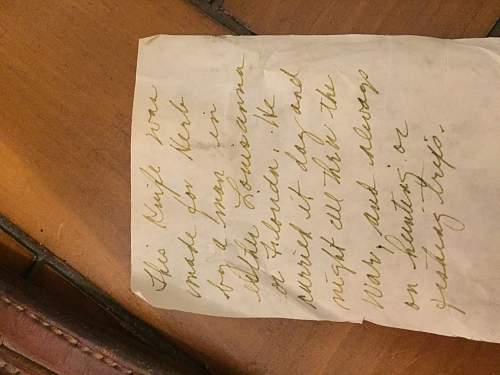 This Knife was
made for Herb
by a man in
either Louisanna
or Florida. He
carried it day and
night all thru the
War, and always
on hunting or
fishing trips.